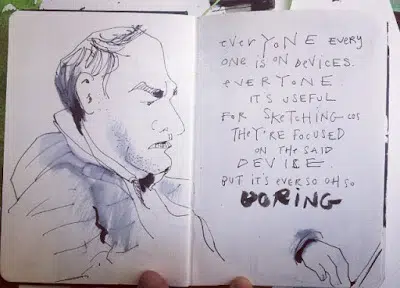 everYoNE EVERY
ONE iS oN DeVICES.
eVERYoNE.
iT'S USEFUL
FOR SKETCHiNG COS
THEY'RE FOCUSED
ON THE SAiD
DEViCE.
BUT iT'S EVER SO OH SO
BORiNG